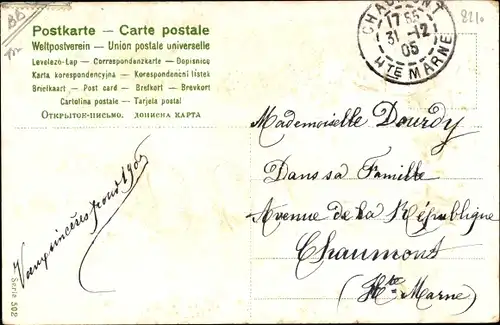 Postkarte — Carte postale
Weltpostverein — Union postale universelle
Levelező-Lap — Correspondenzkarte — Dopisnice
Karta korespondencyjna — Korespondenční lístek
Briefkaart — Post card — Brefkort — Brevkort
Cartolina postale — Tarjeta postal
Открытое-письмо. дописна карта
CHAUMONT
17 55
31 -12
05
HTE MARNE
Mademoiselle Dourdy
Dans sa Famille
Avenue de la République
Chaumont
(Hte Marne)
Voeux sincères pour 1906
Serie 502